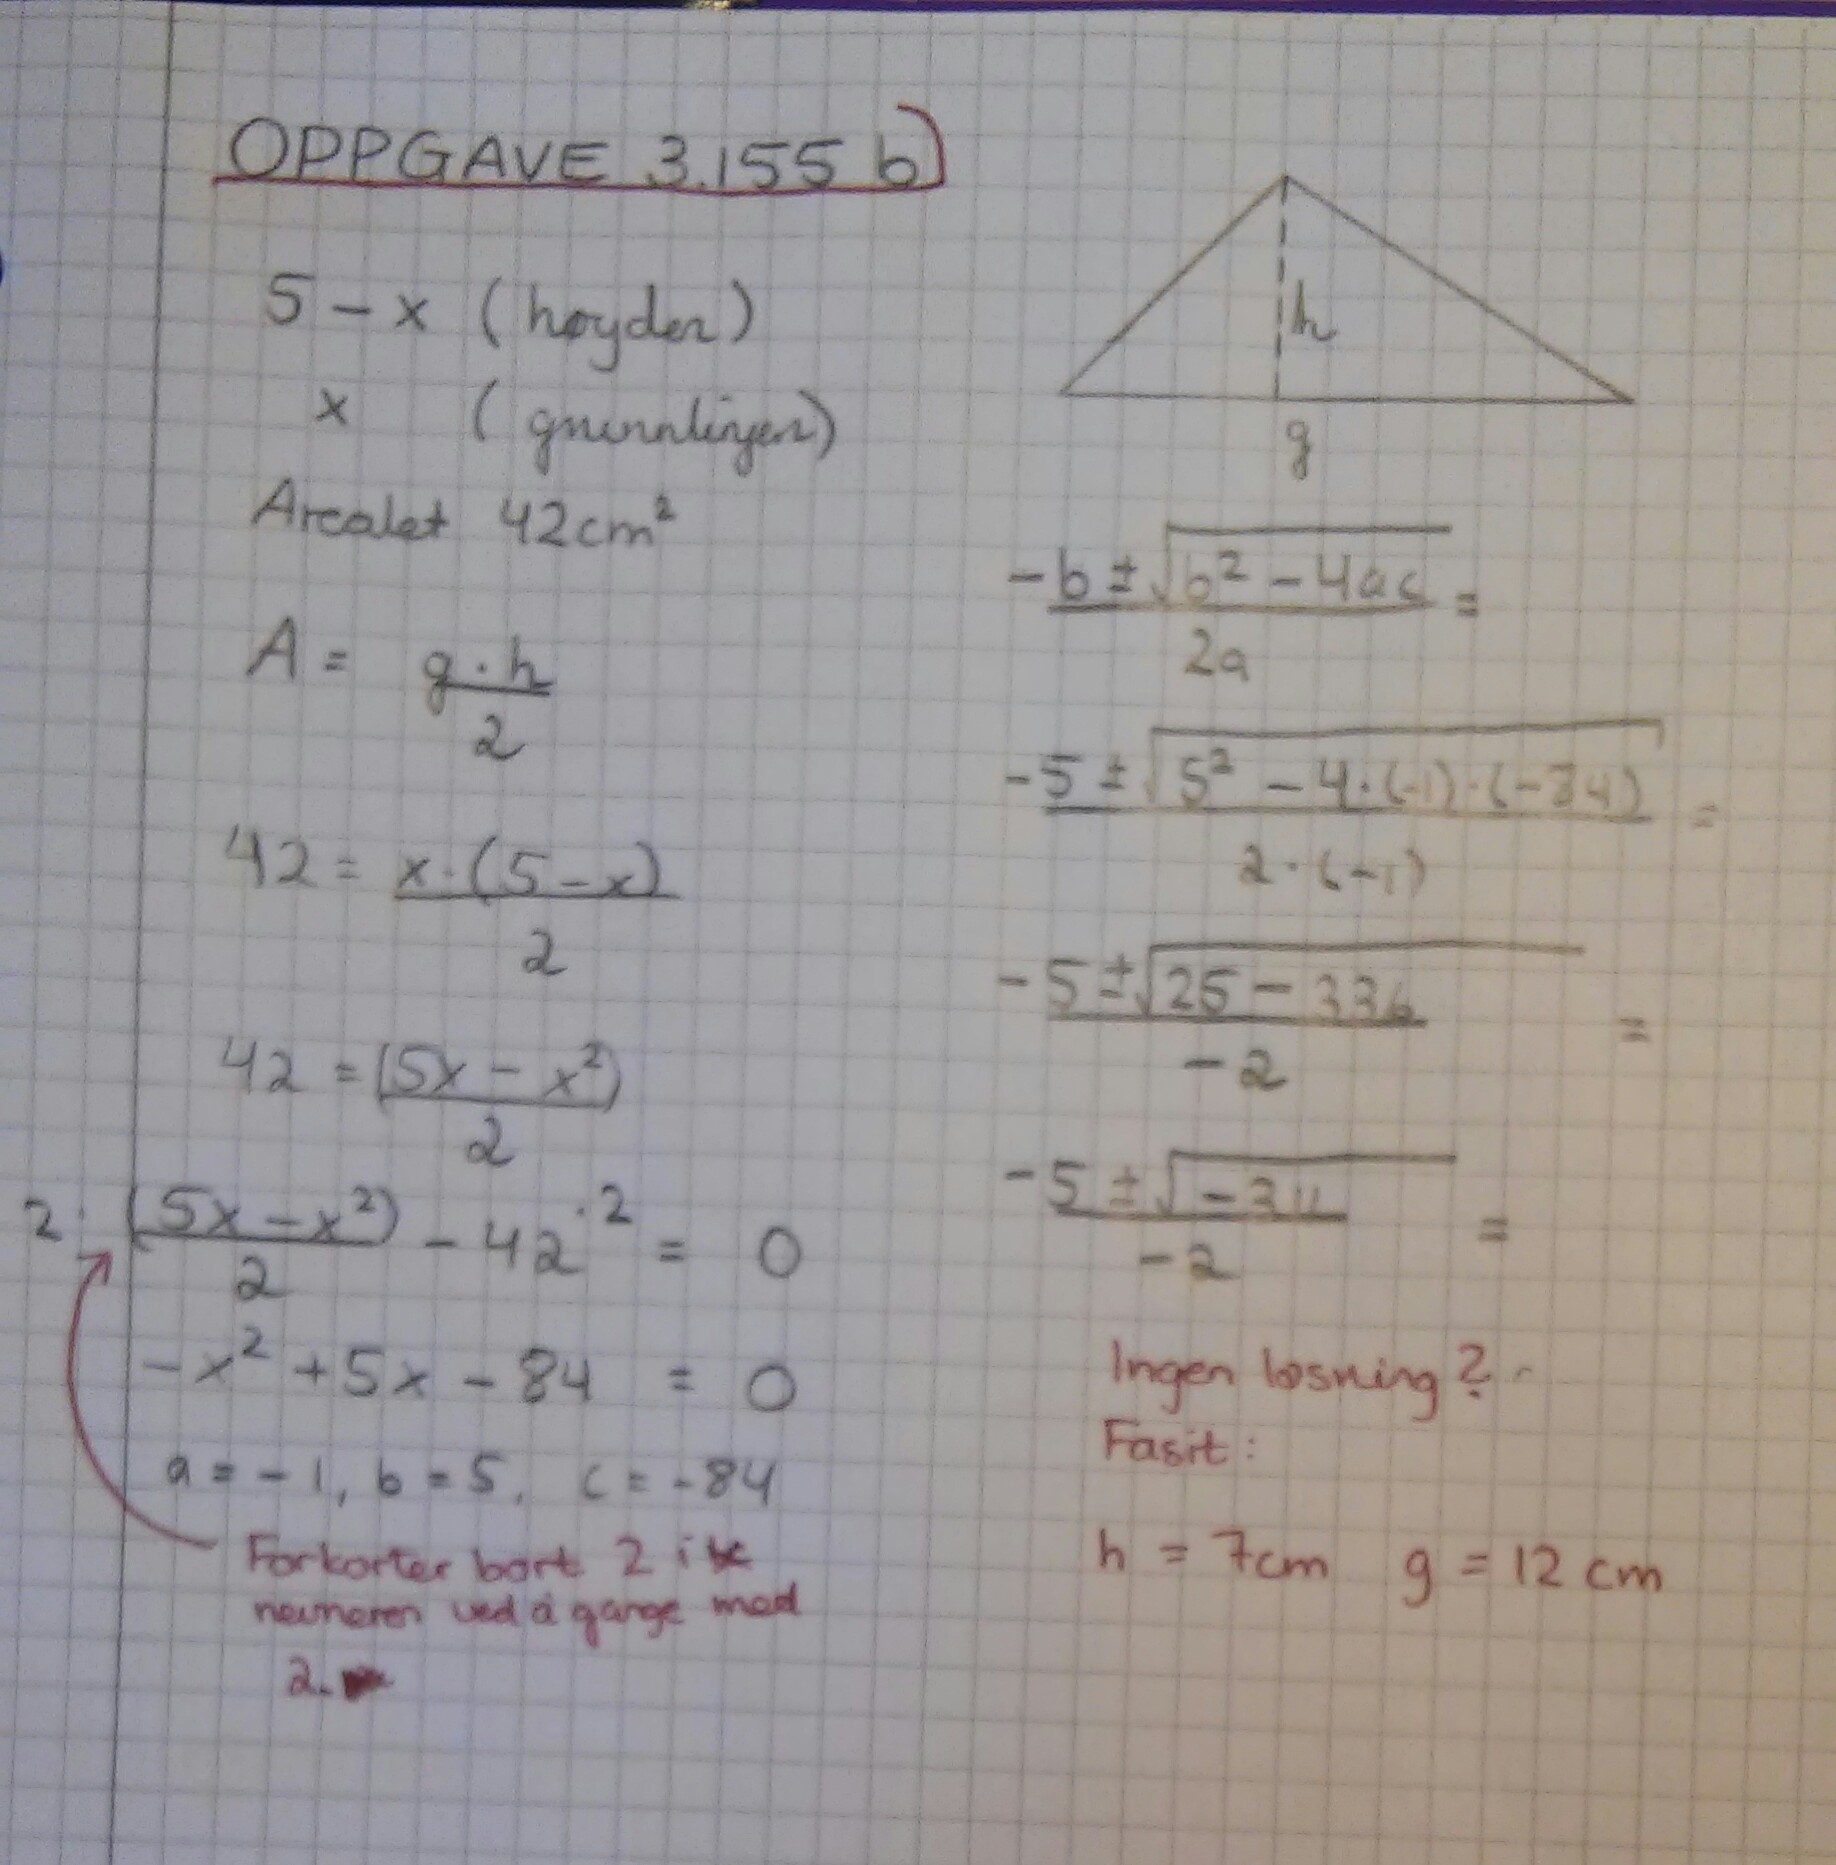 OPPGAVE 3.155 b)
5 - x (høyden)
x (grunnlinjen)
Arealet 42cm²
A = g · h / 2
42 = x · (5 - x) / 2
42 = (5x - x²) / 2
2 · (5x - x²) / 2 - 42 · 2 = 0
-x² + 5x - 84 = 0
a = -1, b = 5, c = -84
Forkorter bort 2 i
nevneren ved å gange med
2.
h
g
-b ± √(b² - 4ac) / 2a =
-5 ± √(5² - 4 · (-1) · (-84)) / 2 · (-1) =
-5 ± √(25 - 336) / -2 =
-5 ± √(-311) / -2 =
Ingen løsning?
Fasit:
h = 7cm g = 12 cm